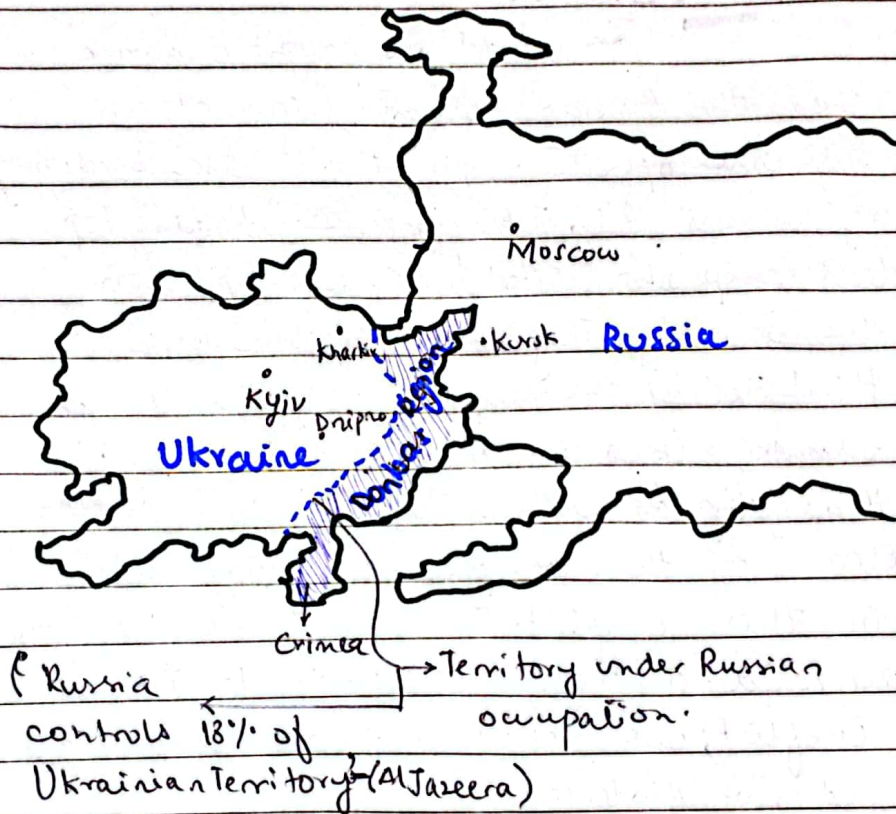 Moscow
Kharkiv
Kursk
Russia
Kyiv
Dnipro
Ukraine
Donbas Region
Crimea
Territory under Russian
occupation.
Russia
controls 18% of
Ukrainian Territory - (Al Jazeera)